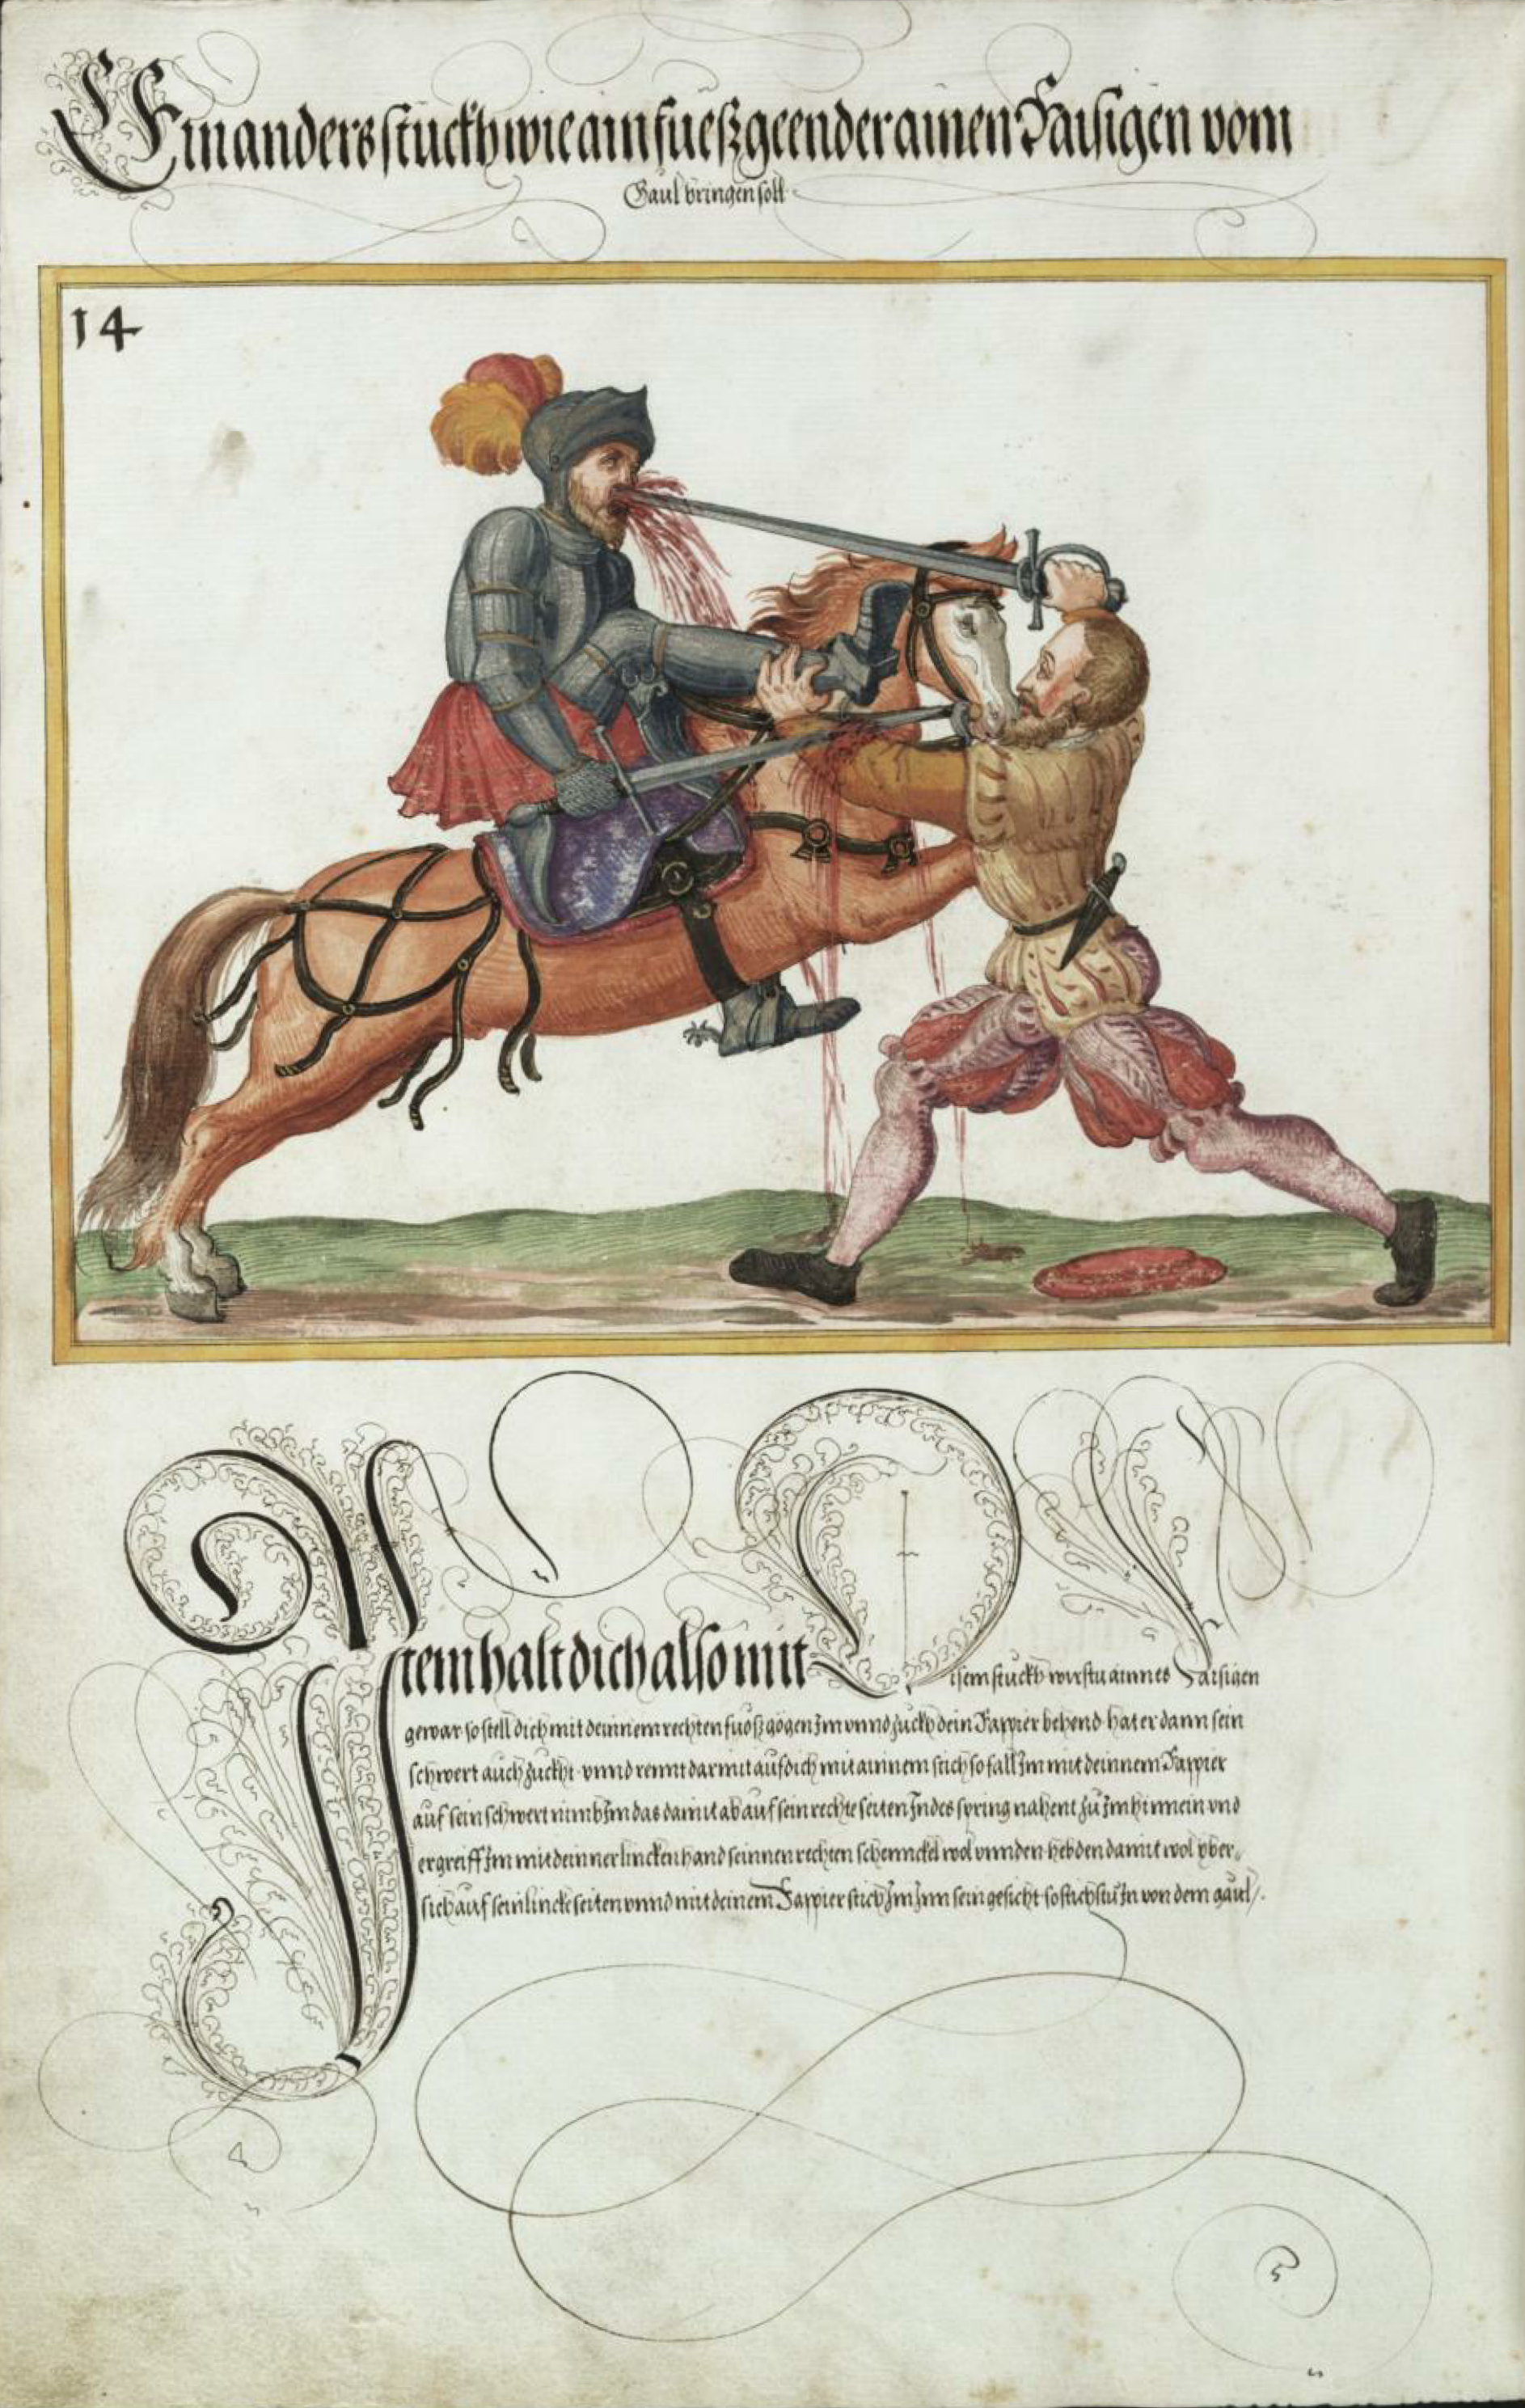 Ein anders stuckh wie ain fueßgeender ainen Raisigen vom
Gaul bringen soll
14
Item halt dich also mit Disem stuckh wirstu ainnes Raisigen
gewar so stell dich mit deinnem rechten fuoß gögen Im vnnd zuckh dein Rappier behend hat er dann sein
schwert auch zuckht vnnd rennt darmit auf dich mit ainnem stich so fall Im mit deinnem Rappier
auf sein schwert nimb Im das damit ab auf sein rechte seiten Indes spring nahent zu Im hinnein vnd
ergreiff Im mit deinner lincken hand seinnen rechten schennckel wol vnnden heb den damit wol yber„
sich auf sein lincke seiten vnnd mit deinem Rappier stich Im Inn sein gesicht so stichstu In von dem gaul /.